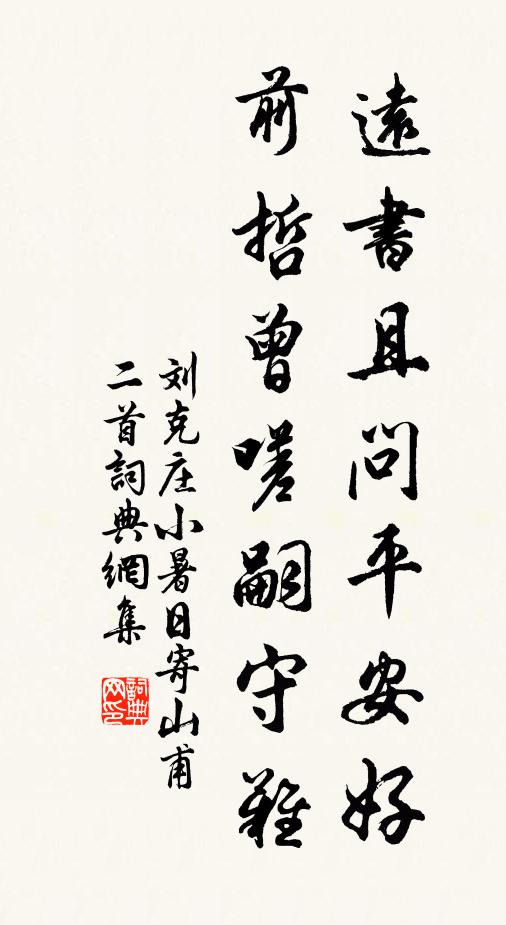 遠書且問平安好
前哲曾嗟嗣守難
刘克庄小暑日寄山甫
二首詞典網集
詞典
网印